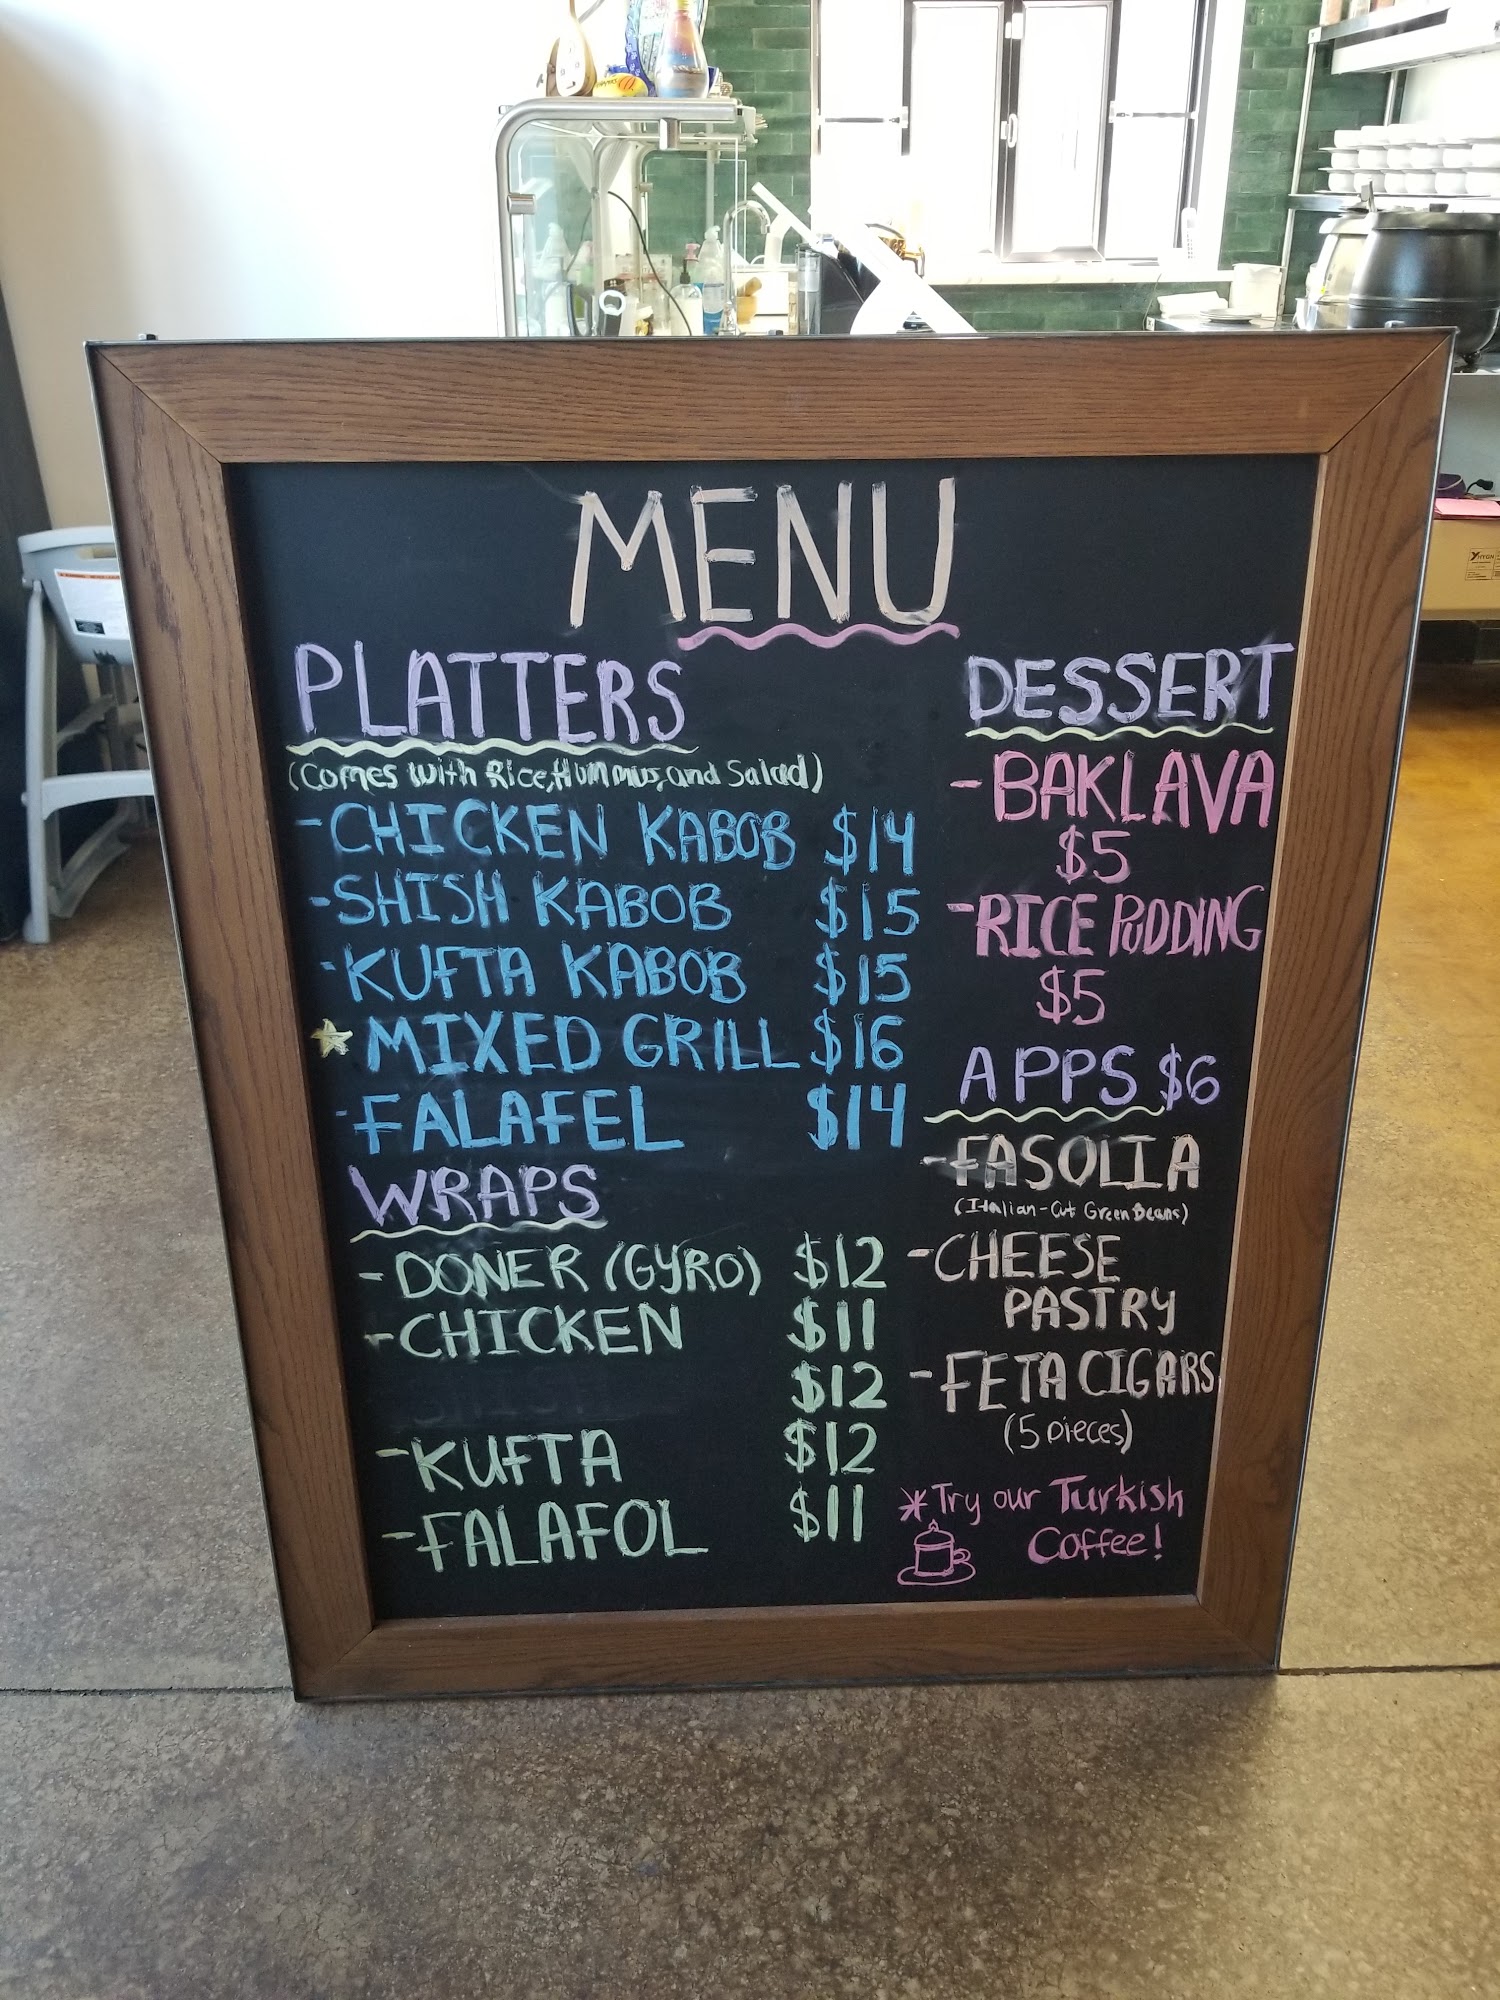 MENU
PLATTERS
(Comes with Rice, Hummus, and Salad)
-CHICKEN KABOB $14
-SHISH KABOB $15
-KUFTA KABOB $15
MIXED GRILL $16
-FALAFEL $14
WRAPS
-DONER (GYRO) $12
-CHICKEN $11
$12
-KUFTA $12
-FALAFOL $11
DESSERT
-BAKLAVA
$5
-RICE PUDDING
$5
APPS $6
-FASOLIA
(Italian-Cut Green Beans)
-CHEESE
PASTRY
-FETA CIGARS
(5 pieces)
*Try our Turkish
Coffee!